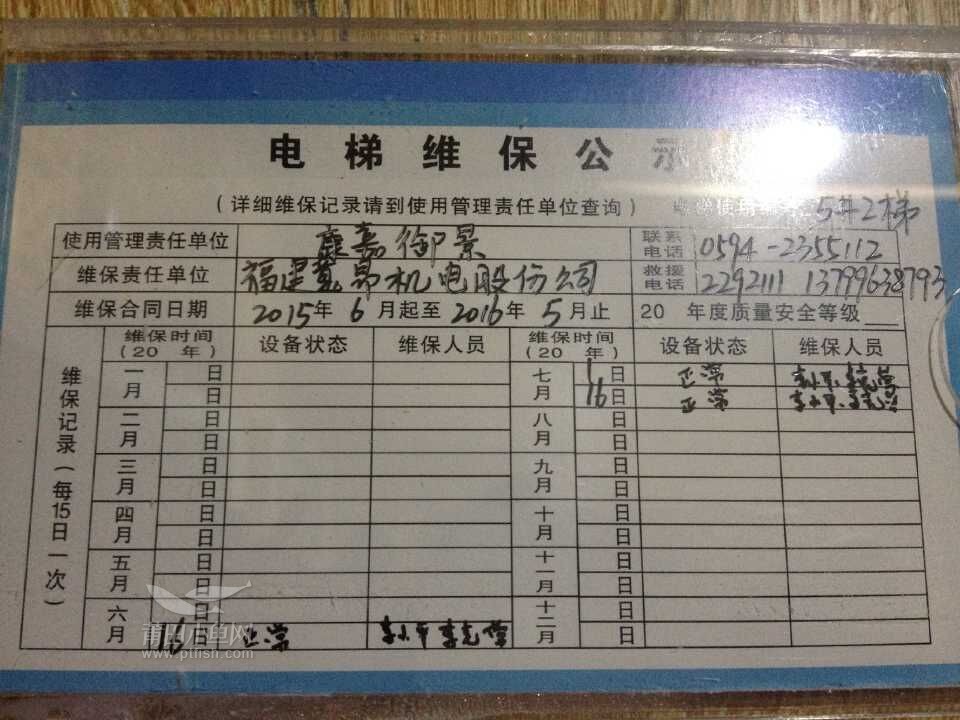 电梯维保公示
（详细维保记录请到使用管理责任单位查询） 5井2梯
使用管理责任单位 鹿嘉御景 联系电话 0594-2355112
维保责任单位 福建 昂机电股份公司 救援电话 2292111 13799638793
维保合同日期 2015年 6月起至 2016年 5月止 20 年度质量安全等级
维保记录（每15日一次）
维保时间（20 年） 设备状态 维保人员 维保时间（20 年） 设备状态 维保人员
一月 日 七月 1日 正常 李小平、李克营
日 16日 正常 李小平、李克营
二月 日 八月 日
日 日
三月 日 九月 日
日 日
四月 日 十月 日
日 日
五月 日 十一月 日
日 日
六月 日 十二月 日
16日 正常 李小平 李克营 日
莆田小鱼网
www.ptfish.com